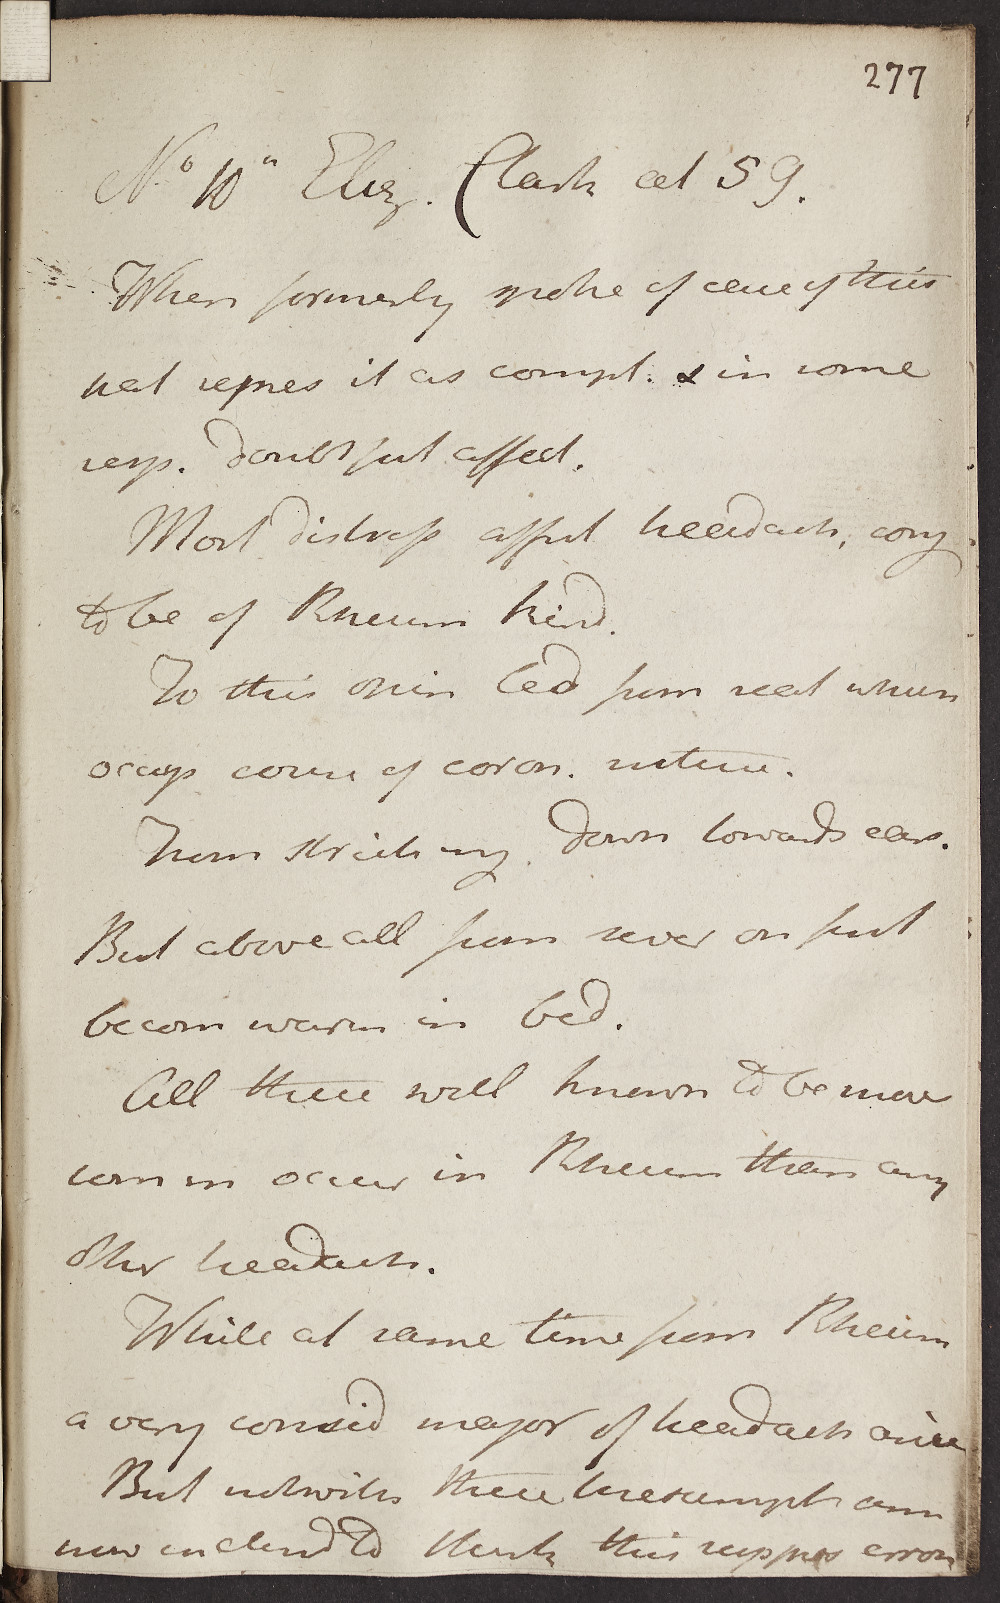 277
No 10" Eliz. Clark aet 59.
When formerly spoke of case of this
pat repres it as compl. & in some
resp. doubtful affect.
Most distress affect headach, conj
to be of Rheum kind.
To this opin led from seat when
occup course of coron. suture.
From stretching down towards ears.
But above all from sever on first
becom warm in bed.
All these well known to be more
comm occur in Rheum than any
other headach.
While at same time from Rheum
a very consid major of headach arise
But notwith these presumpt am
now inclind to think this suppos erron